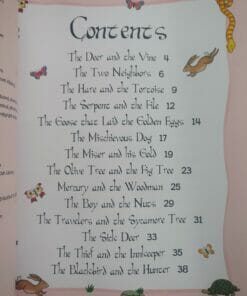 Contents
The Deer and the Vine 4
The Two Neighbors 6
The Hare and the Tortoise 9
The Serpent and the File 12
The Goose that Laid the Golden Eggs 14
The Mischievous Dog 17
The Miser and his Gold 19
The Olive Tree and the Fig Tree 23
Mercury and the Woodman 25
The Boy and the Nuts 29
The Travelers and the Sycamore Tree 31
The Sick Deer 33
The Thief and the Innkeeper 35
The Blackbird and the Hunter 38